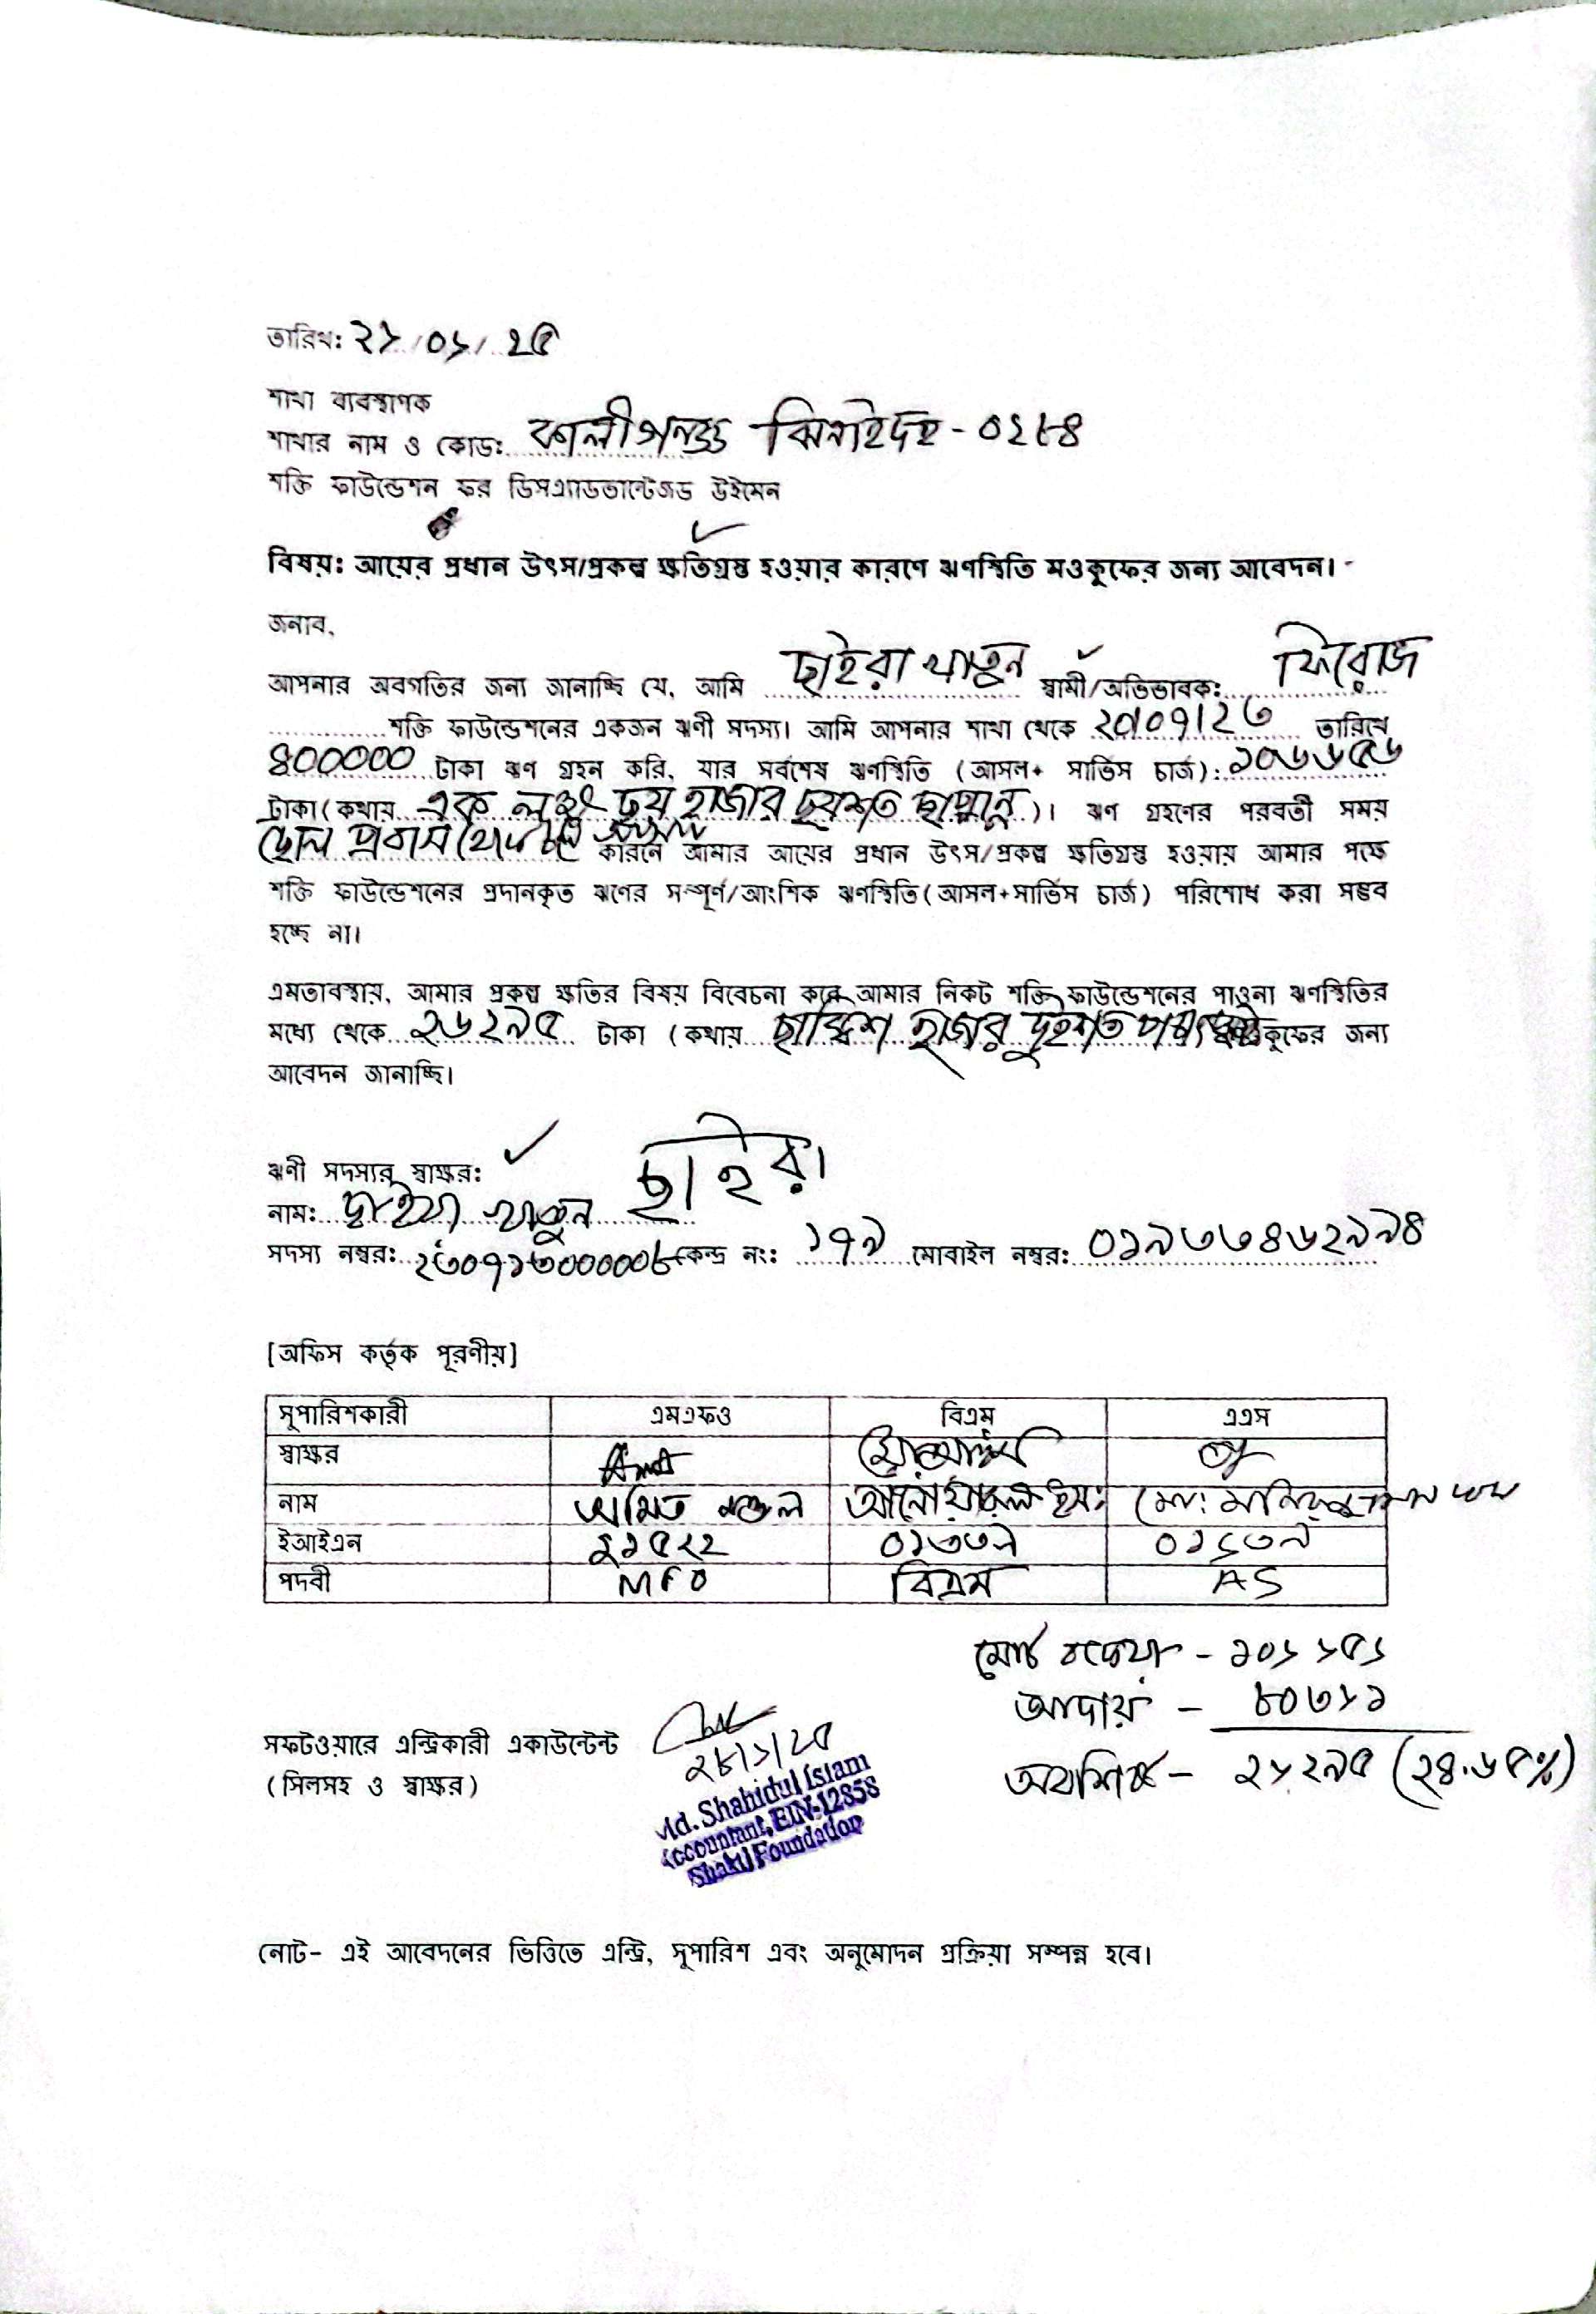 তারিখ: ২১/০১/২৫
শাখা ব্যবস্থাপক
শাখার নাম ও কোড: কালীগঞ্জ ঝিনাইদহ - ০২৮৪
শক্তি ফাউন্ডেশন ফর ডিসএ্যাডভান্টেজড উইমেন
বিষয়: আয়ের প্রধান উৎস/প্রকল্প ক্ষতিগ্রস্ত হওয়ার কারণে ঋণস্থিতি মওকুফের জন্য আবেদন।
জনাব,
আপনার অবগতির জন্য জানাচ্ছি যে, আমি ছাইরা খাতুন স্বামী/অভিভাবক: ফিরোজ
শক্তি ফাউন্ডেশনের একজন ঋণী সদস্য। আমি আপনার শাখা থেকে ২০/০৭/২৩ তারিখে
৪০০০০০ টাকা ঋণ গ্রহন করি, যার সর্বশেষ ঋণস্থিতি (আসল+ সার্ভিস চার্জ): ১০৬৬৫৬
টাকা (কথায় এক লক্ষ ছয় হাজার ছয়শত ছাপ্পান্ন)। ঋণ গ্রহণের পরবর্তী সময়
ছেলে প্রবাস থেকে কারনে আমার আয়ের প্রধান উৎস/প্রকল্প ক্ষতিগ্রস্ত হওয়ায় আমার পক্ষে
শক্তি ফাউন্ডেশনের প্রদানকৃত ঋণের সম্পূর্ণ/আংশিক ঋণস্থিতি(আসল+সার্ভিস চার্জ) পরিশোধ করা সম্ভব
হচ্ছে না।
এমতাবস্থায়, আমার প্রকল্প ক্ষতির বিষয় বিবেচনা করে আমার নিকট শক্তি ফাউন্ডেশনের পাওনা ঋণস্থিতির
মধ্যে থেকে ২৬২৯৫ টাকা (কথায় ছাব্বিশ হাজার দুইশত মওকুফের জন্য
আবেদন জানাচ্ছি।
ঋণী সদস্যর স্বাক্ষর: ছাইরা
নাম: ছাইরা খাতুন
সদস্য নম্বর: ২৩০৭১৩০০০০০৮ কেন্দ্র নং: ১৭৯ মোবাইল নম্বর: ০১৯৩৩৪৬২৯৯৪
[অফিস কর্তৃক পূরণীয়]
সুপারিশকারী এমএফও বিএম এএস
স্বাক্ষর
নাম অমিত মণ্ডল আনোয়ারুল ইস: মো: মনিরুজ্জামান
ইআইএন ২১৫২২ ০১৩৩৯ ০১৬৩৯
পদবী MFO বিএম AS
মোট বকেয়া - ১০৬৬৫৬
আদায় - ৮০৩৬১
সফটওয়ারে এন্ট্রিকারী একাউন্টেন্ট
২৮/১/২৫
অবশিষ্ট - ২৬২৯৫ (২৪.৬৫%)
(সিলসহ ও স্বাক্ষর)
Md. Shahidul Islam
Accountant, EIN-12858
Shakti Foundation
নোট- এই আবেদনের ভিত্তিতে এন্ট্রি, সুপারিশ এবং অনুমোদন প্রক্রিয়া সম্পন্ন হবে।